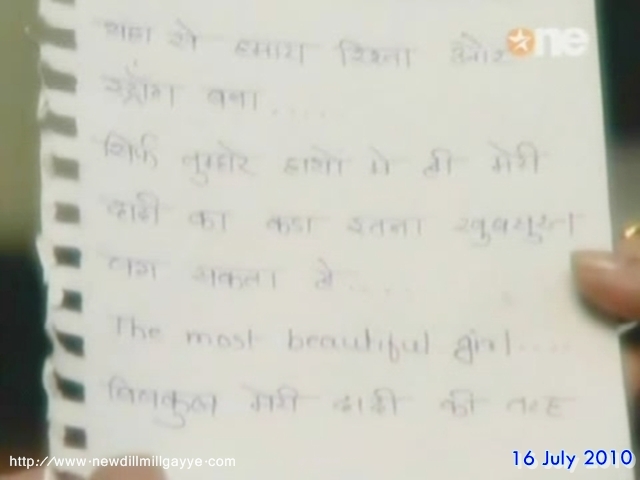 one
यहा से हमारा रिश्ता और
स्ट्रोंग बना.....
सिर्फ तुम्हारे हाथो मे ही मेरी
दादी का कडा इतना खुबसुरत
लग सकता है.....
The most beautiful girl.....
बिलकुल मेरी दादी की तरह
http://www.newdillmillgayye.com
16 July 2010